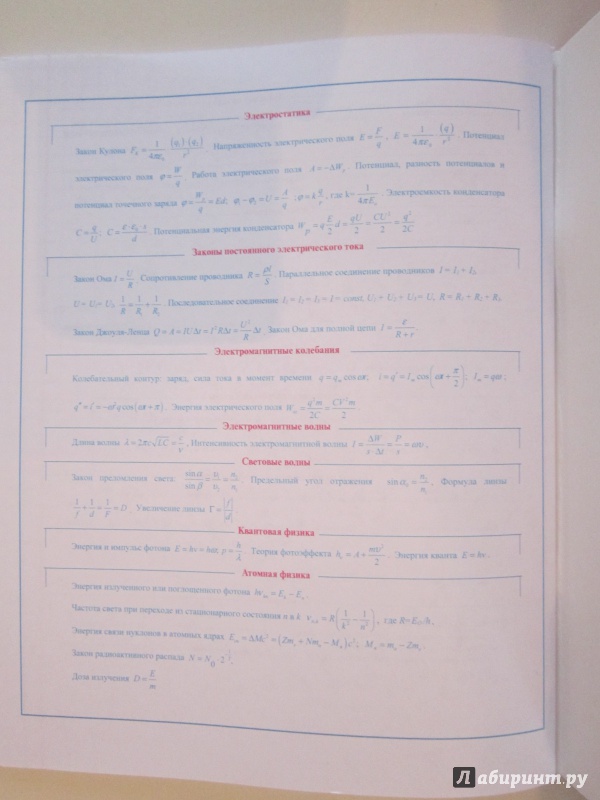 Электростатика
Закон Кулона F_k = 1/4πε₀ (q₁)·(q₂)/r². Напряженность электрического поля E = F/q, E = 1/4πε₀ (q)/r². Потенциал
электрического поля φ = W/q. Работа электрического поля A = −ΔW_p. Потенциал, разность потенциалов и
потенциал точечного заряда φ = W_p/q = Ed; φ₁−φ₂ = U = A/q; φ = k q/r, где k = 1/4πE₀. Электроемкость конденсатора
C = q/U; C = ε·ε₀·s/d. Потенциальная энергия конденсатора W_p = q E/2 d = qU/2 = CU²/2 = q²/2C
Законы постоянного электрического тока
Закон Ома I = U/R. Сопротивление проводника R = ρl/S. Параллельное соединение проводников I = I₁ + I₂,
U = U₁ = U₂, 1/R = 1/R₁ + 1/R₂. Последовательное соединение I₁ = I₂ = I₃ = I = const, U₁ + U₂ + U₃ = U, R = R₁ + R₂ + R₃
Закон Джоуля-Ленца Q = A = IUΔt = I²RΔt = U²/R Δt. Закон Ома для полной цепи I = ε/R + r.
Электромагнитные колебания
Колебательный контур: заряд, сила тока в момент времени q = q_m cos ωt; i = q' = I_m cos(ωt + π/2); I_m = qω;
q'' = i' = −ω² q cos(ωt + π). Энергия электрического поля W = q²m/2C = CV²m/2.
Электромагнитные волны
Длина волны λ = 2πc√LC = c/ν, Интенсивность электромагнитной волны I = ΔW/s·Δt = P/s = ωcν,
Световые волны
Закон преломления света: sin α/sin β = υ₁/υ₂ = n₂/n₁. Предельный угол отражения sin α₀ = n₂/n₁, Формула линзы
1/f + 1/d = 1/F = D. Увеличение линзы Γ = |f|/|d|
Квантовая физика
Энергия и импульс фотона E = hν = hω, p = h/λ. Теория фотоэффекта h_ν = A + mυ²/2. Энергия кванта E = hν.
Атомная физика
Энергия излученного или поглощенного фотона hν = E − E.
Частота света при переходе из стационарного состояния n в k ν = R(1/k² − 1/n²), где R=E₍₁₎/h,
Энергия связи нуклонов в атомных ядрах E = ΔMc² = (Zm + Nm − M)c²; M = m − Zm.
Закон радиоактивного распада N = N₀ · 2
Доза излучения D = E/m
Лабиринт.ру